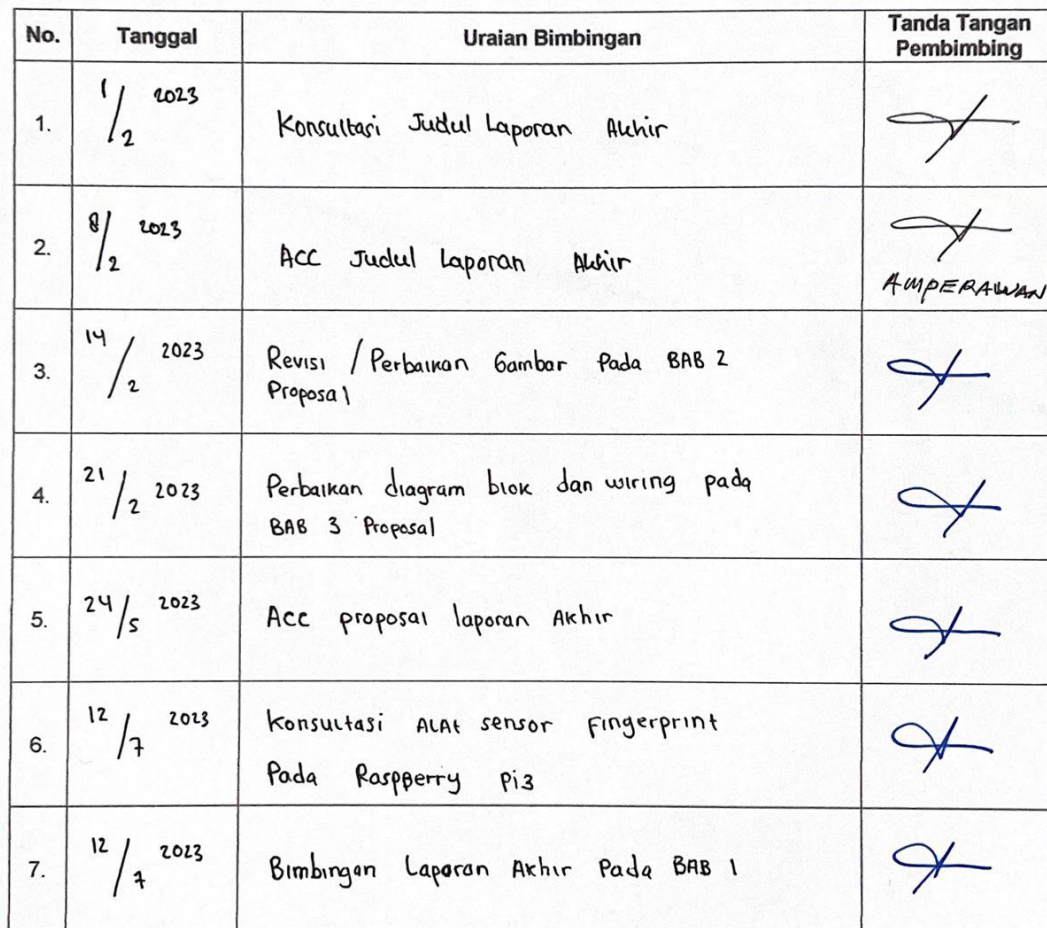 No. Tanggal Uraian Bimbingan Tanda Tangan
Pembimbing
1. 1/2 2023 Konsultasi Judul Laporan Akhir
2. 8/2 2023 ACC Judul Laporan Akhir
AMPERAWAN
3. 14/2 2023 Revisi / Perbaikan Gambar Pada BAB 2
Proposal
4. 21/2 2023 Perbaikan diagram blok dan wiring pada
BAB 3 Proposal
5. 24/5 2023 Acc proposal laporan Akhir
6. 12/7 2023 Konsultasi ALAt sensor Fingerprint
Pada Raspperry Pi3
7. 12/7 2023 Bimbingan Laporan Akhir Pada BAB 1